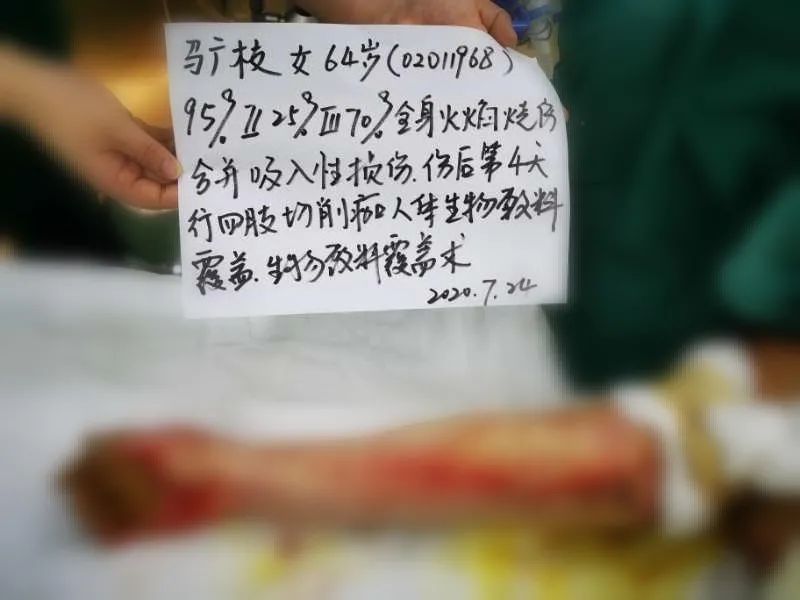 马广枝 女 64岁(02011968)
95% Ⅱ25% Ⅲ70% 全身火焰烧伤
合并吸入性损伤.伤后第4天
行四肢切削痂人体生物敷料
覆盖.生物敷料覆盖术
2020.7.24